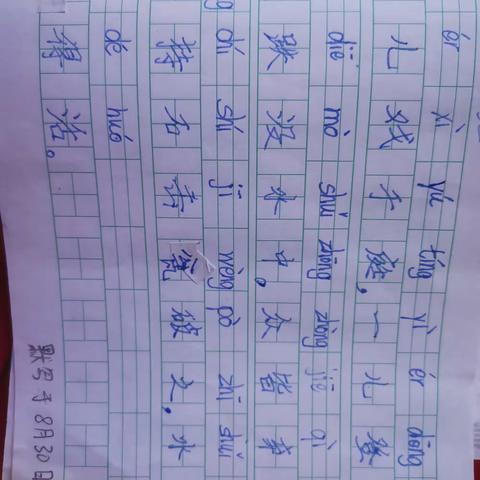 ér xì yú tíng yì ér dēng
儿戏于庭,一儿登
diē mò shuǐ zhōng zhòng jiē qì
跌没水中。众皆弃
chí shí jī wèng pò zhī shuǐ
持石击瓮破之,水
dé huó
得活。
默写于8月30日